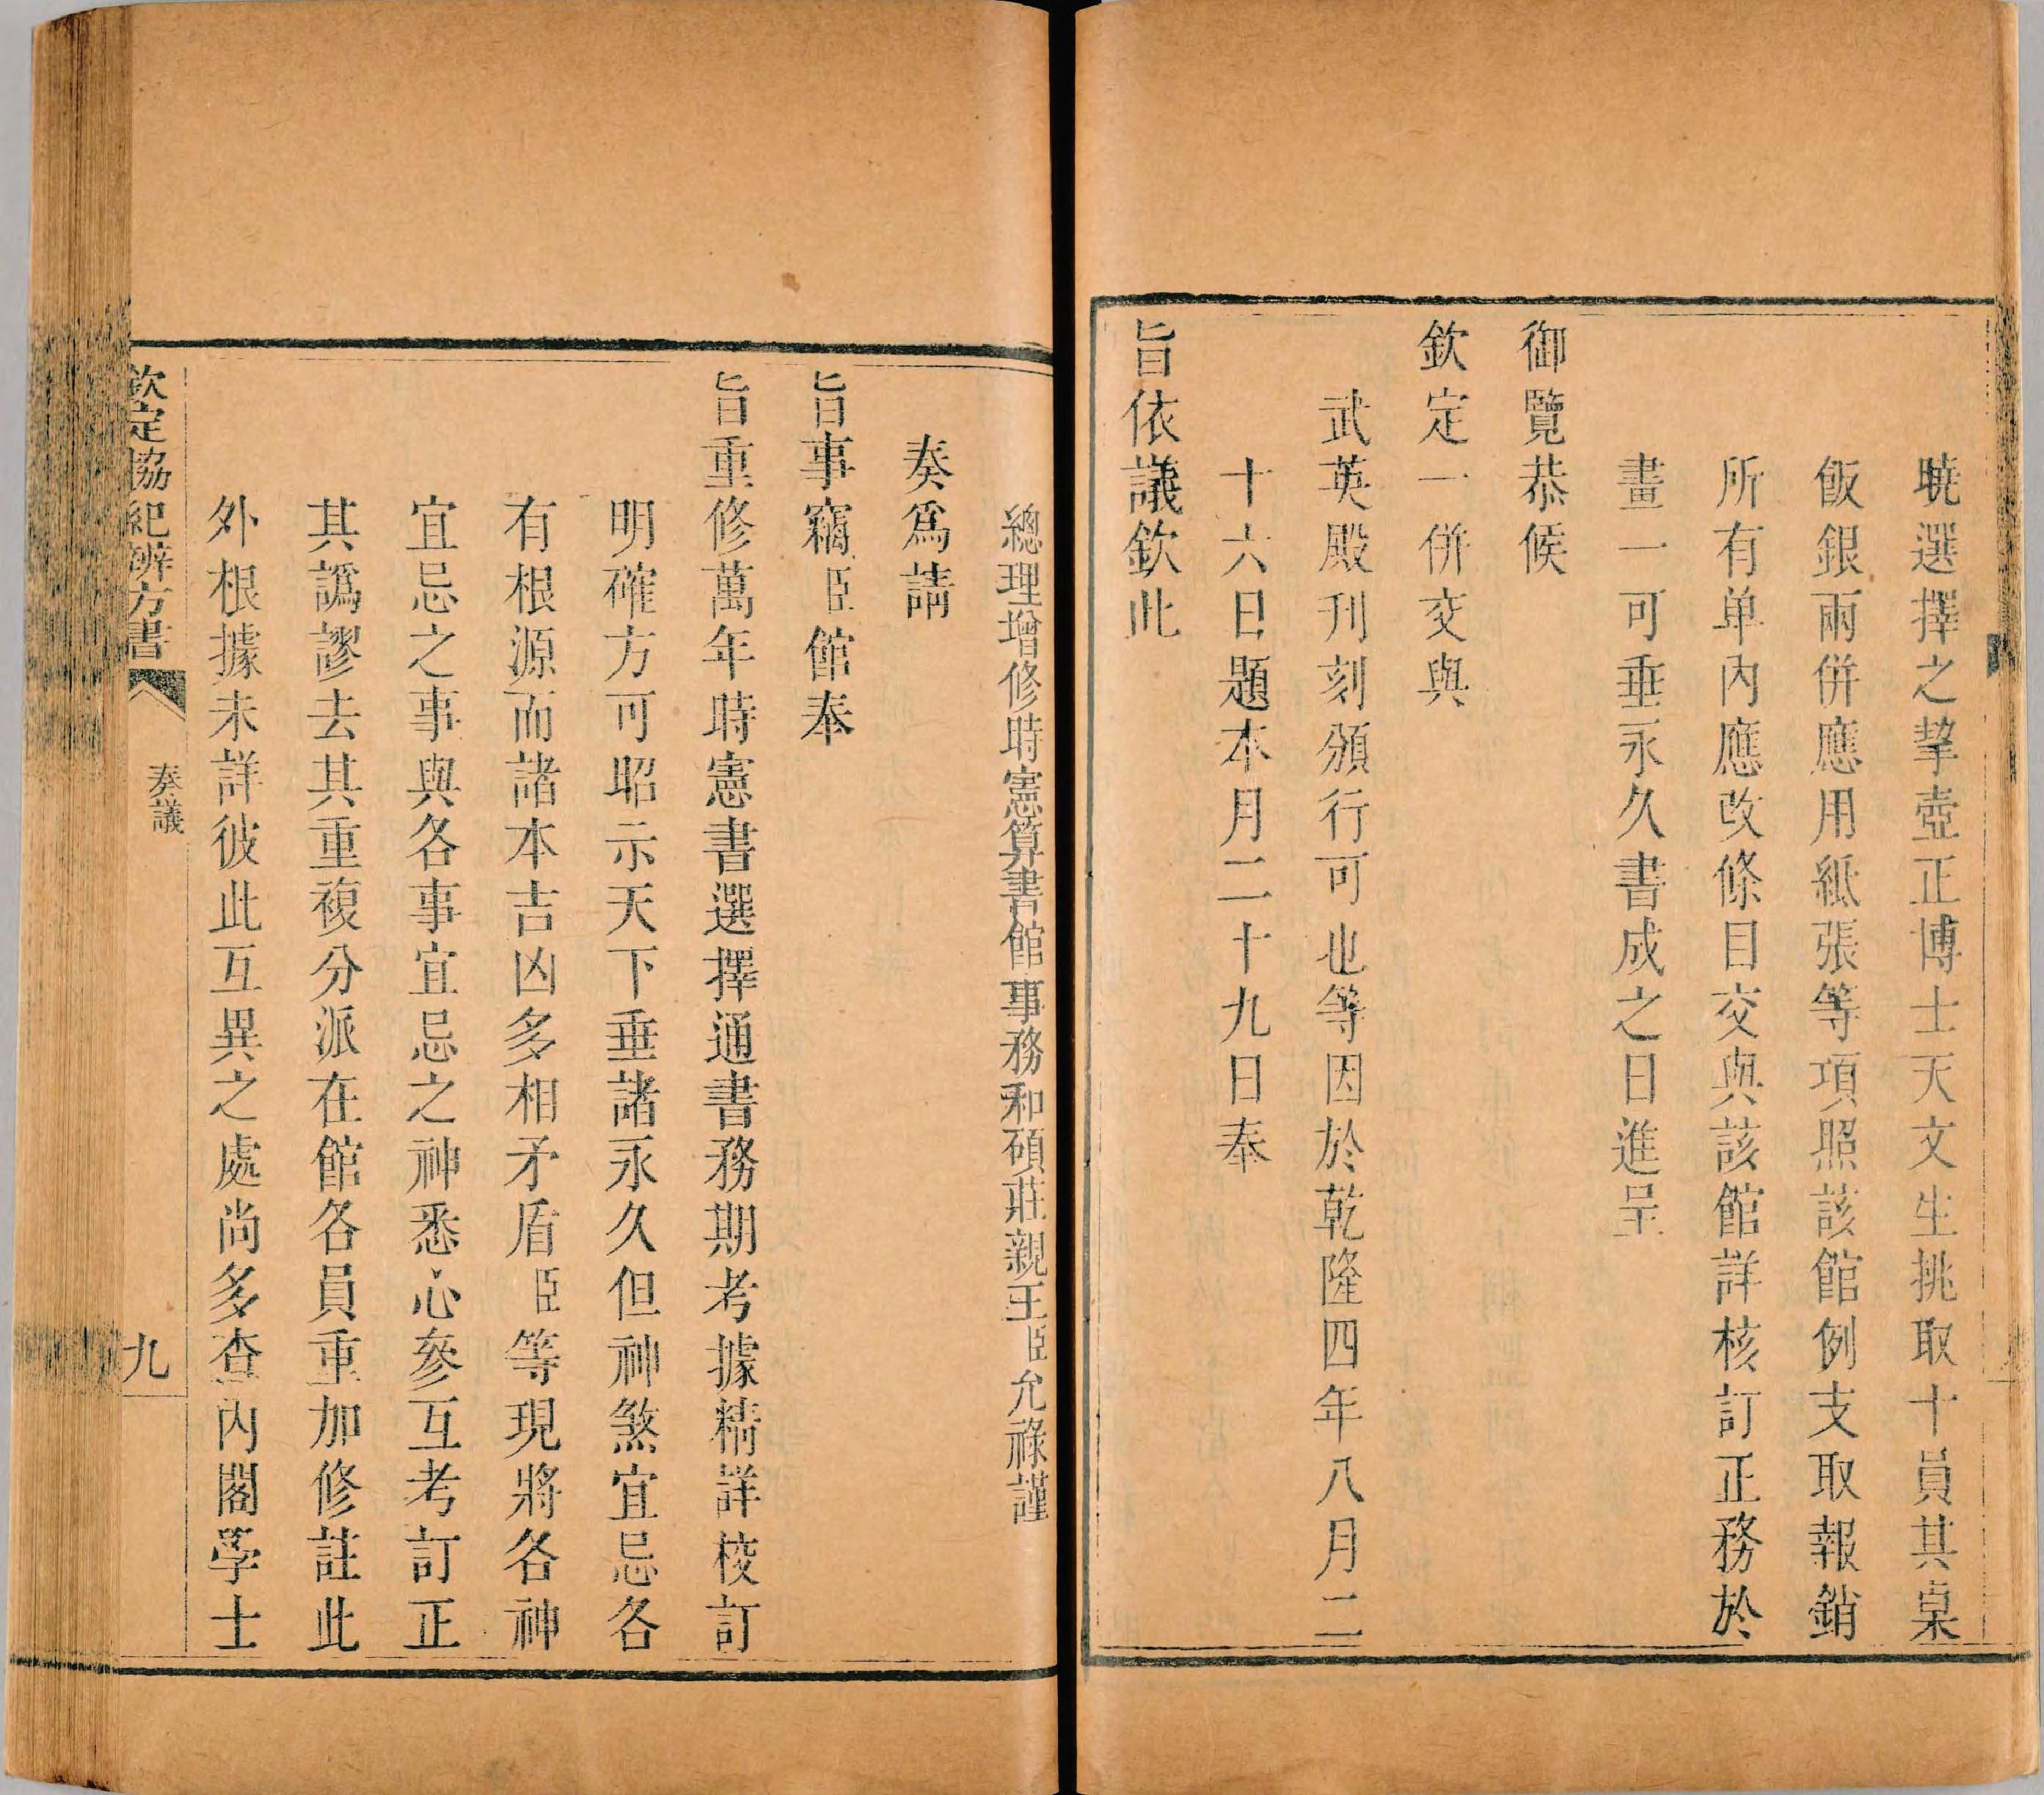 曉選擇之挈壺正博士天文生挑取十員其桌
飯銀兩併應用紙張等項照該館例支取報銷
所有单內應改條目交與該館詳核訂正務於
畫一可垂永久書成之日進呈
御覽恭候
欽定一併交與
武英殿刊刻頒行可也等因於乾隆四年八月二
十六日題本月二十九日奉
旨依議欽此
總理增修時憲算書館事務和碩莊親王臣允祿謹
奏爲請
旨事竊臣館奉
旨重修萬年時憲書選擇通書務期考據精詳校訂
明確方可昭示天下垂諸永久但神煞宜忌各
有根源而諸本吉凶多相矛盾臣等現將各神
宜忌之事與各事宜忌之神悉心叅互考訂正
其譌謬去其重複分派在館各員重加修註此
外根據未詳彼此互異之處尚多查內閣學士
欽定協紀辨方書
奏議
九